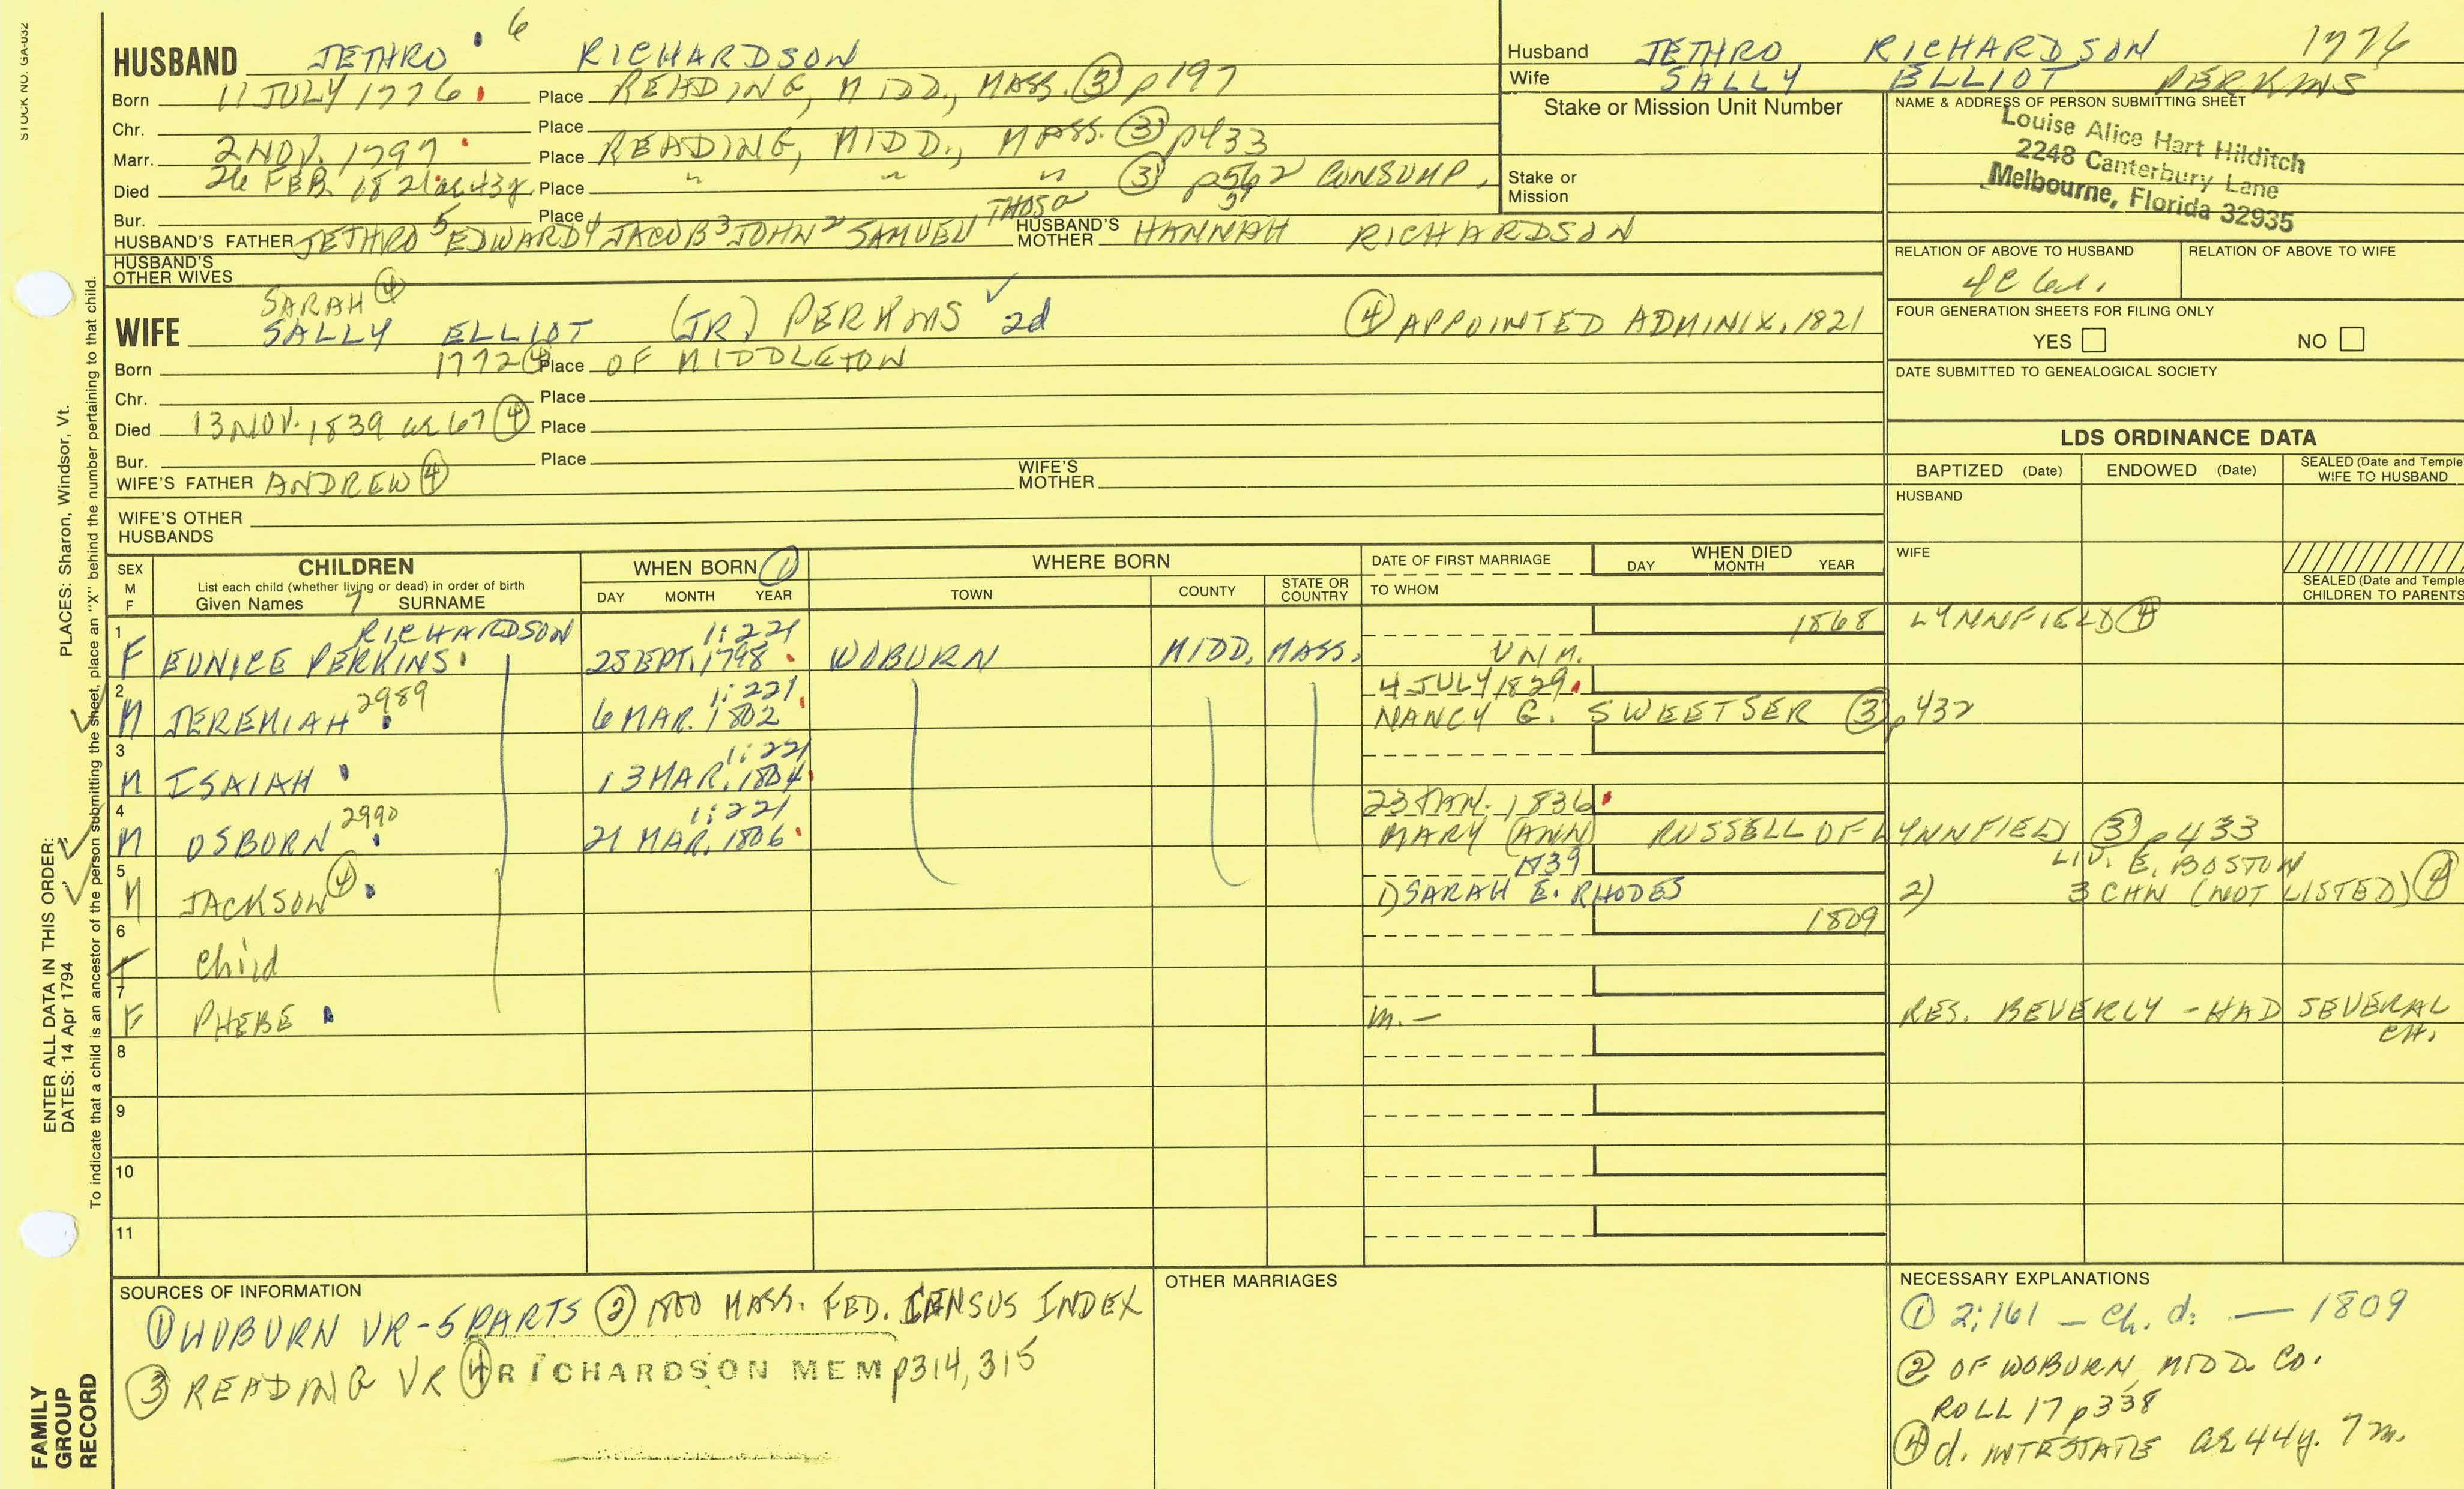 STOCK NO. GA-032
HUSBAND JETHRO 6 RICHARDSON
Born 11 JULY 1776 Place READING, MIDD., MASS. ③ p197
Chr. Place
Marr. 2 NOV. 1797 Place READING, MIDD., MASS. ③ p433
Died 26 FEB. 1821 ae 43y. Place " " " ③ p562 CONSUMP.
Bur. Place
HUSBAND'S FATHER JETHRO 5 EDWARD 4 JACOB 3 JOHN 2 SAMUEL THOS HUSBAND'S MOTHER HANNAH RICHARDSON
HUSBAND'S OTHER WIVES
SARAH ④
WIFE SALLY ELLIOT (JR) PERKINS 2d ④ APPOINTED ADMINIX. 1821
Born 1772 ④ Place OF MIDDLETON
Chr. Place
Died 13 NOV. 1839 ae 67 ④ Place
Bur. Place
WIFE'S FATHER ANDREW ④ WIFE'S MOTHER
WIFE'S OTHER HUSBANDS
Husband JETHRO RICHARDSON 1776
Wife SALLY ELLIOT PERKINS
Stake or Mission Unit Number
Stake or Mission
NAME & ADDRESS OF PERSON SUBMITTING SHEET
Louise Alice Hart Hilditch
2248 Canterbury Lane
Melbourne, Florida 32935
RELATION OF ABOVE TO HUSBAND RELATION OF ABOVE TO WIFE
FOUR GENERATION SHEETS FOR FILING ONLY
YES NO
DATE SUBMITTED TO GENEALOGICAL SOCIETY
LDS ORDINANCE DATA
BAPTIZED (Date) ENDOWED (Date) SEALED (Date and Temple WIFE TO HUSBAND
HUSBAND
WIFE
SEALED (Date and Temple CHILDREN TO PARENTS
SEX M F CHILDREN List each child (whether living or dead) in order of birth Given Names 7 SURNAME
WHEN BORN ① DAY MONTH YEAR
WHERE BORN TOWN COUNTY STATE OR COUNTRY
DATE OF FIRST MARRIAGE TO WHOM
WHEN DIED DAY MONTH YEAR
1 RICHARDSON 1:221 1868 LYNNFIELD ④
F EUNICE PERKINS 28 SEPT. 1798 WOBURN MIDD. MASS. UNM.
2 2989 1:221 4 JULY 1829
M JEREMIAH 6 MAR. 1802 NANCY G. SWEETSER ③ p432
3 1:221
M ISAIAH 13 MAR. 1804
4 2990 1:221 23 JAN. 1836
M OSBORN 21 MAR. 1806 MARY (ANN) RUSSELL OF LYNNFIELD ③ p433
5 1839 LIV. E. BOSTON
M JACKSON ④ 1) SARAH E. RHODES 2) 3 CHN (NOT LISTED) ④
6 1809
child
7
F PHEBE m. — RES. BEVERLY - HAD SEVERAL CH.
8
9
10
11
SOURCES OF INFORMATION
① WOBURN VR-5 PARTS ② 1800 MASS. FED. CENSUS INDEX
③ READING VR ④ RICHARDSON MEM p314, 315
OTHER MARRIAGES
NECESSARY EXPLANATIONS
① 2:161 — Ch. d. — 1809
② OF WOBURN, MIDD. CO.
ROLL 17 p338
④ d. INTESTATE ae 44y. 7m.
PLACES: Sharon, Windsor, Vt.
ENTER ALL DATA IN THIS ORDER:
DATES: 14 Apr 1794
To indicate that a child is an ancestor of the person submitting the sheet, place an "X" behind the number pertaining to that child.
FAMILY GROUP RECORD